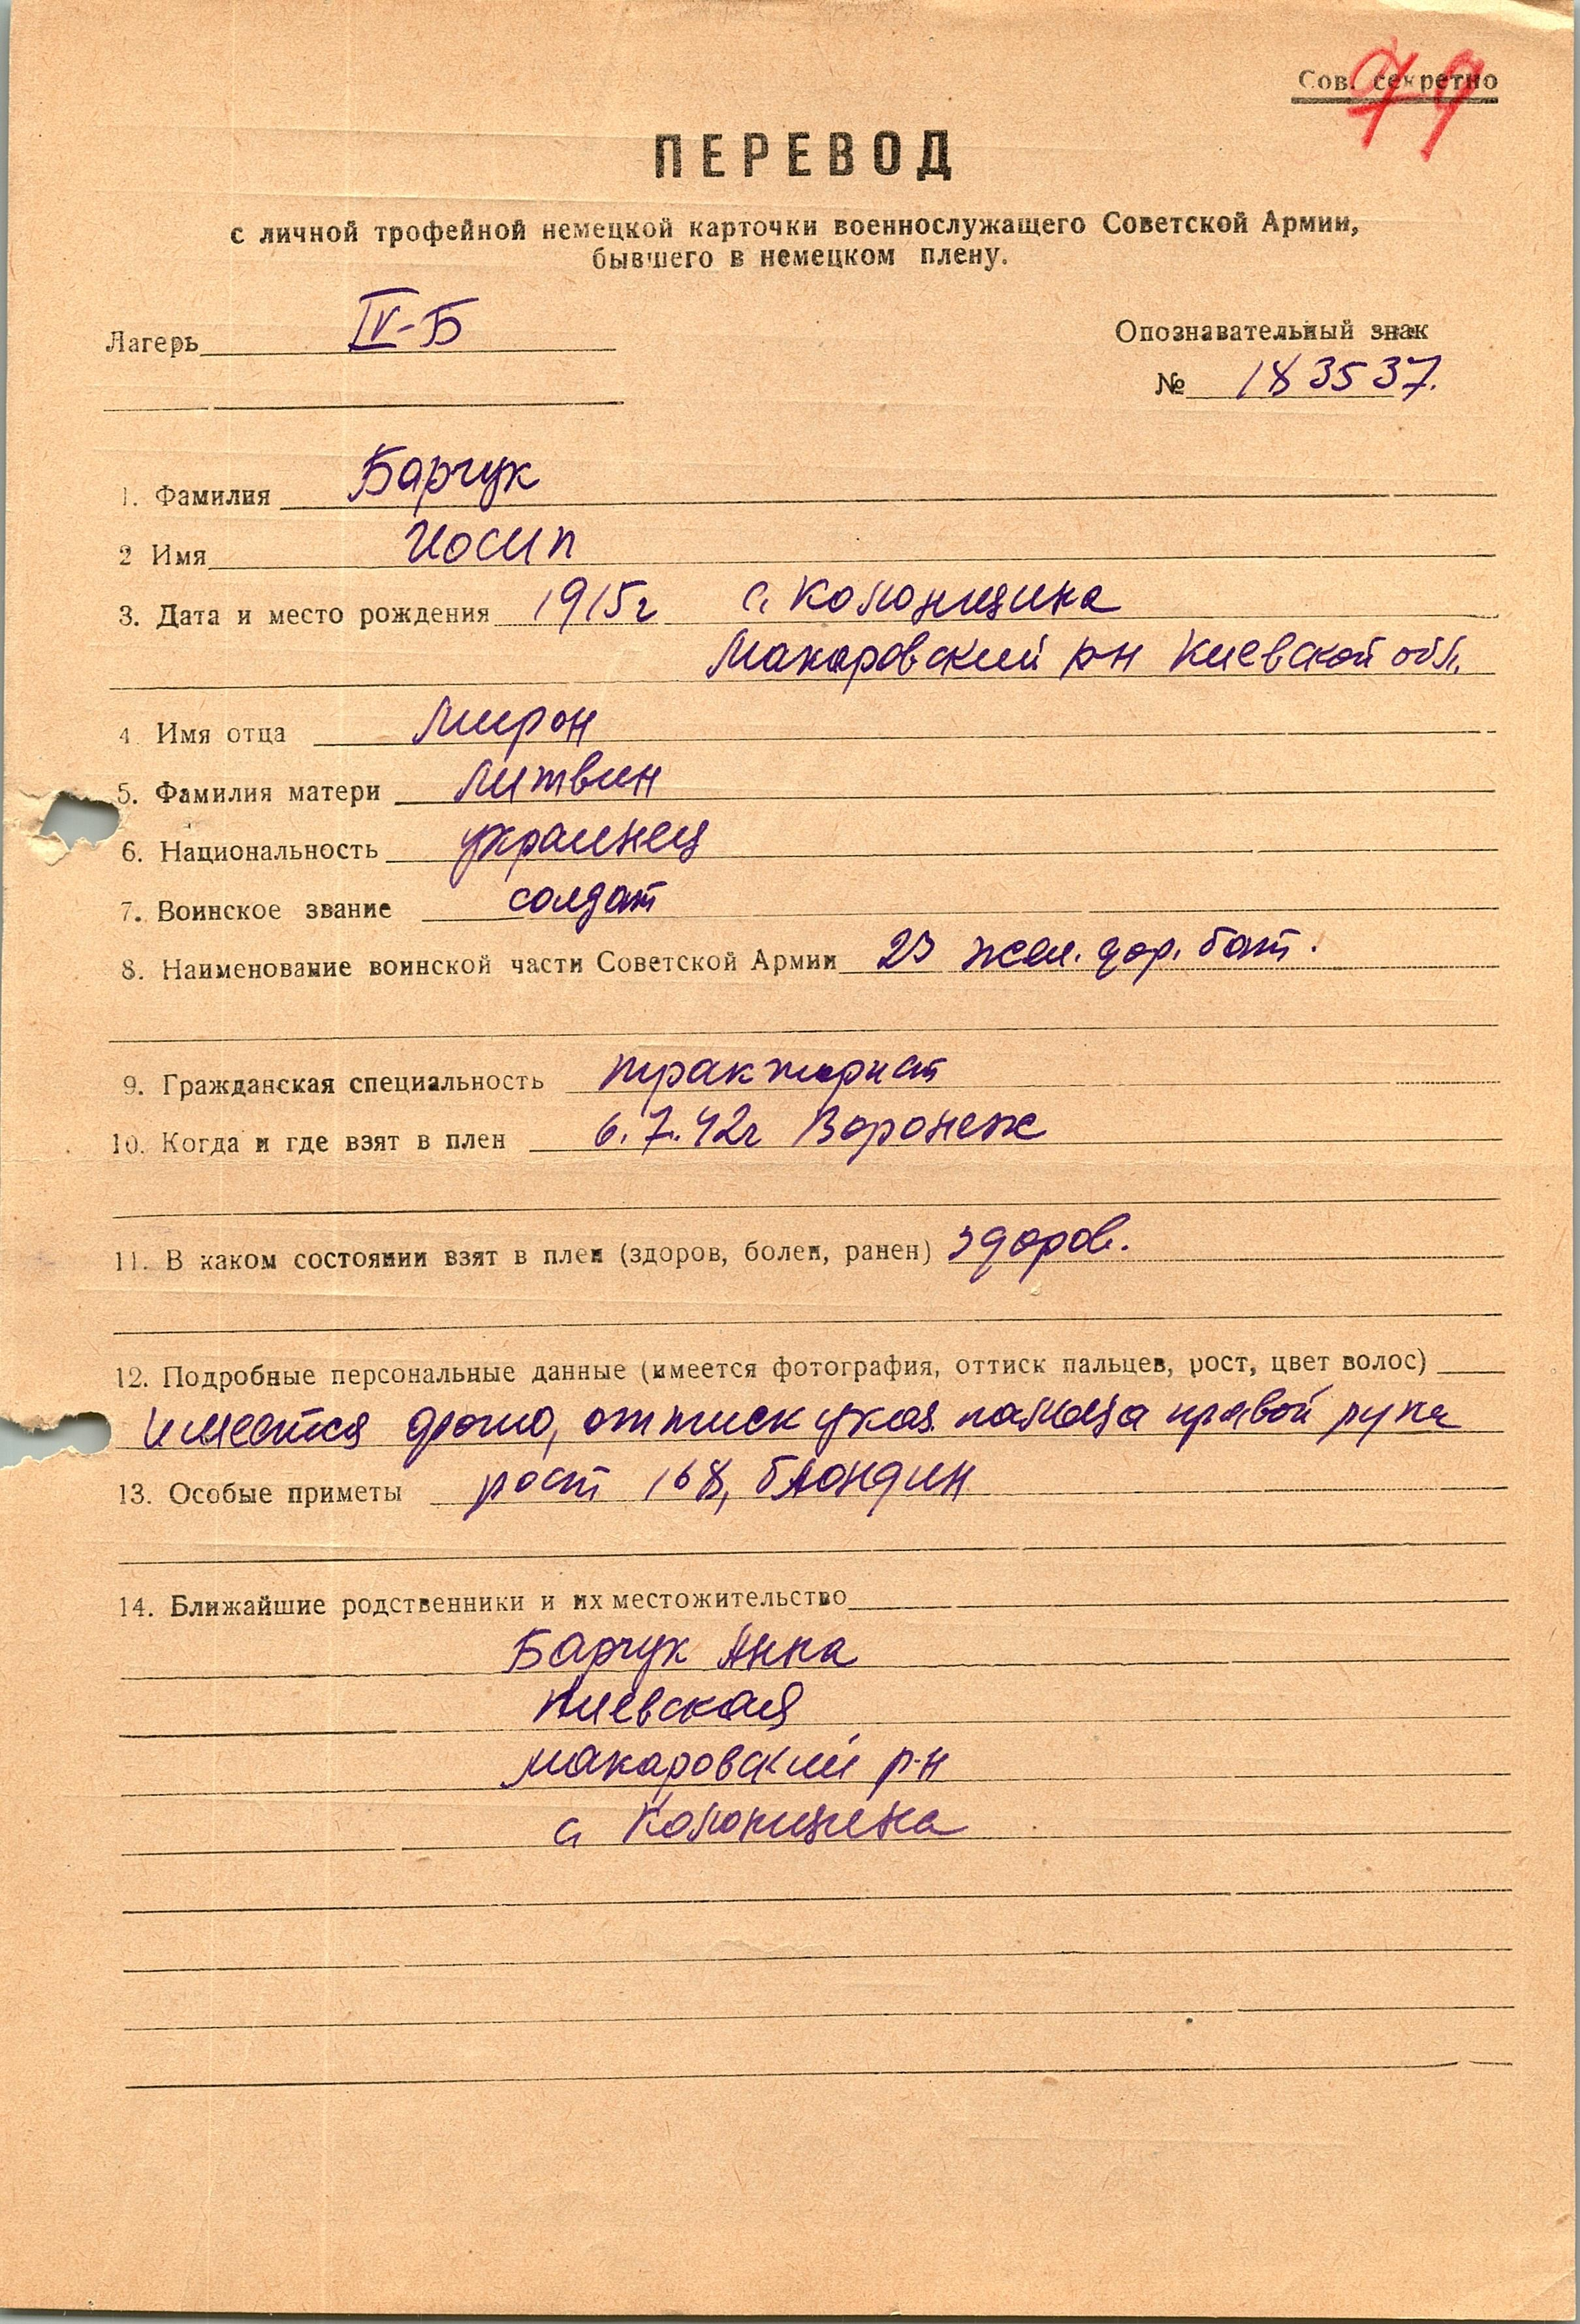 Сов. секретно
79
ПЕРЕВОД
с личной трофейной немецкой карточки военнослужащего Советской Армии,
бывшего в немецком плену.
Лагерь IV-Б
Опознавательный знак
№ 183537.
1. Фамилия Барчук
2 Имя Иосип
3. Дата и место рождения 1915г с. Колонщина
Макаровский р-н Киевской обл.
4. Имя отца Мирон
5. Фамилия матери Литвин
6. Национальность украинец
7. Воинское звание солдат
8. Наименование воинской части Советской Армии 23 жел. дор. бат.
9. Гражданская специальность тракторист
10. Когда и где взят в плен 6.7.42г Воронеж
11. В каком состоянии взят в плен (здоров, болен, ранен) здоров.
12. Подробные персональные данные (имеется фотография, оттиск пальцев, рост, цвет волос)
имеется фото, оттиск указ. пальца правой руки
13. Особые приметы рост 168, блондин
14. Ближайшие родственники и их местожительство
Барчук Анна
Киевская
Макаровский р-н
с. Колонщина